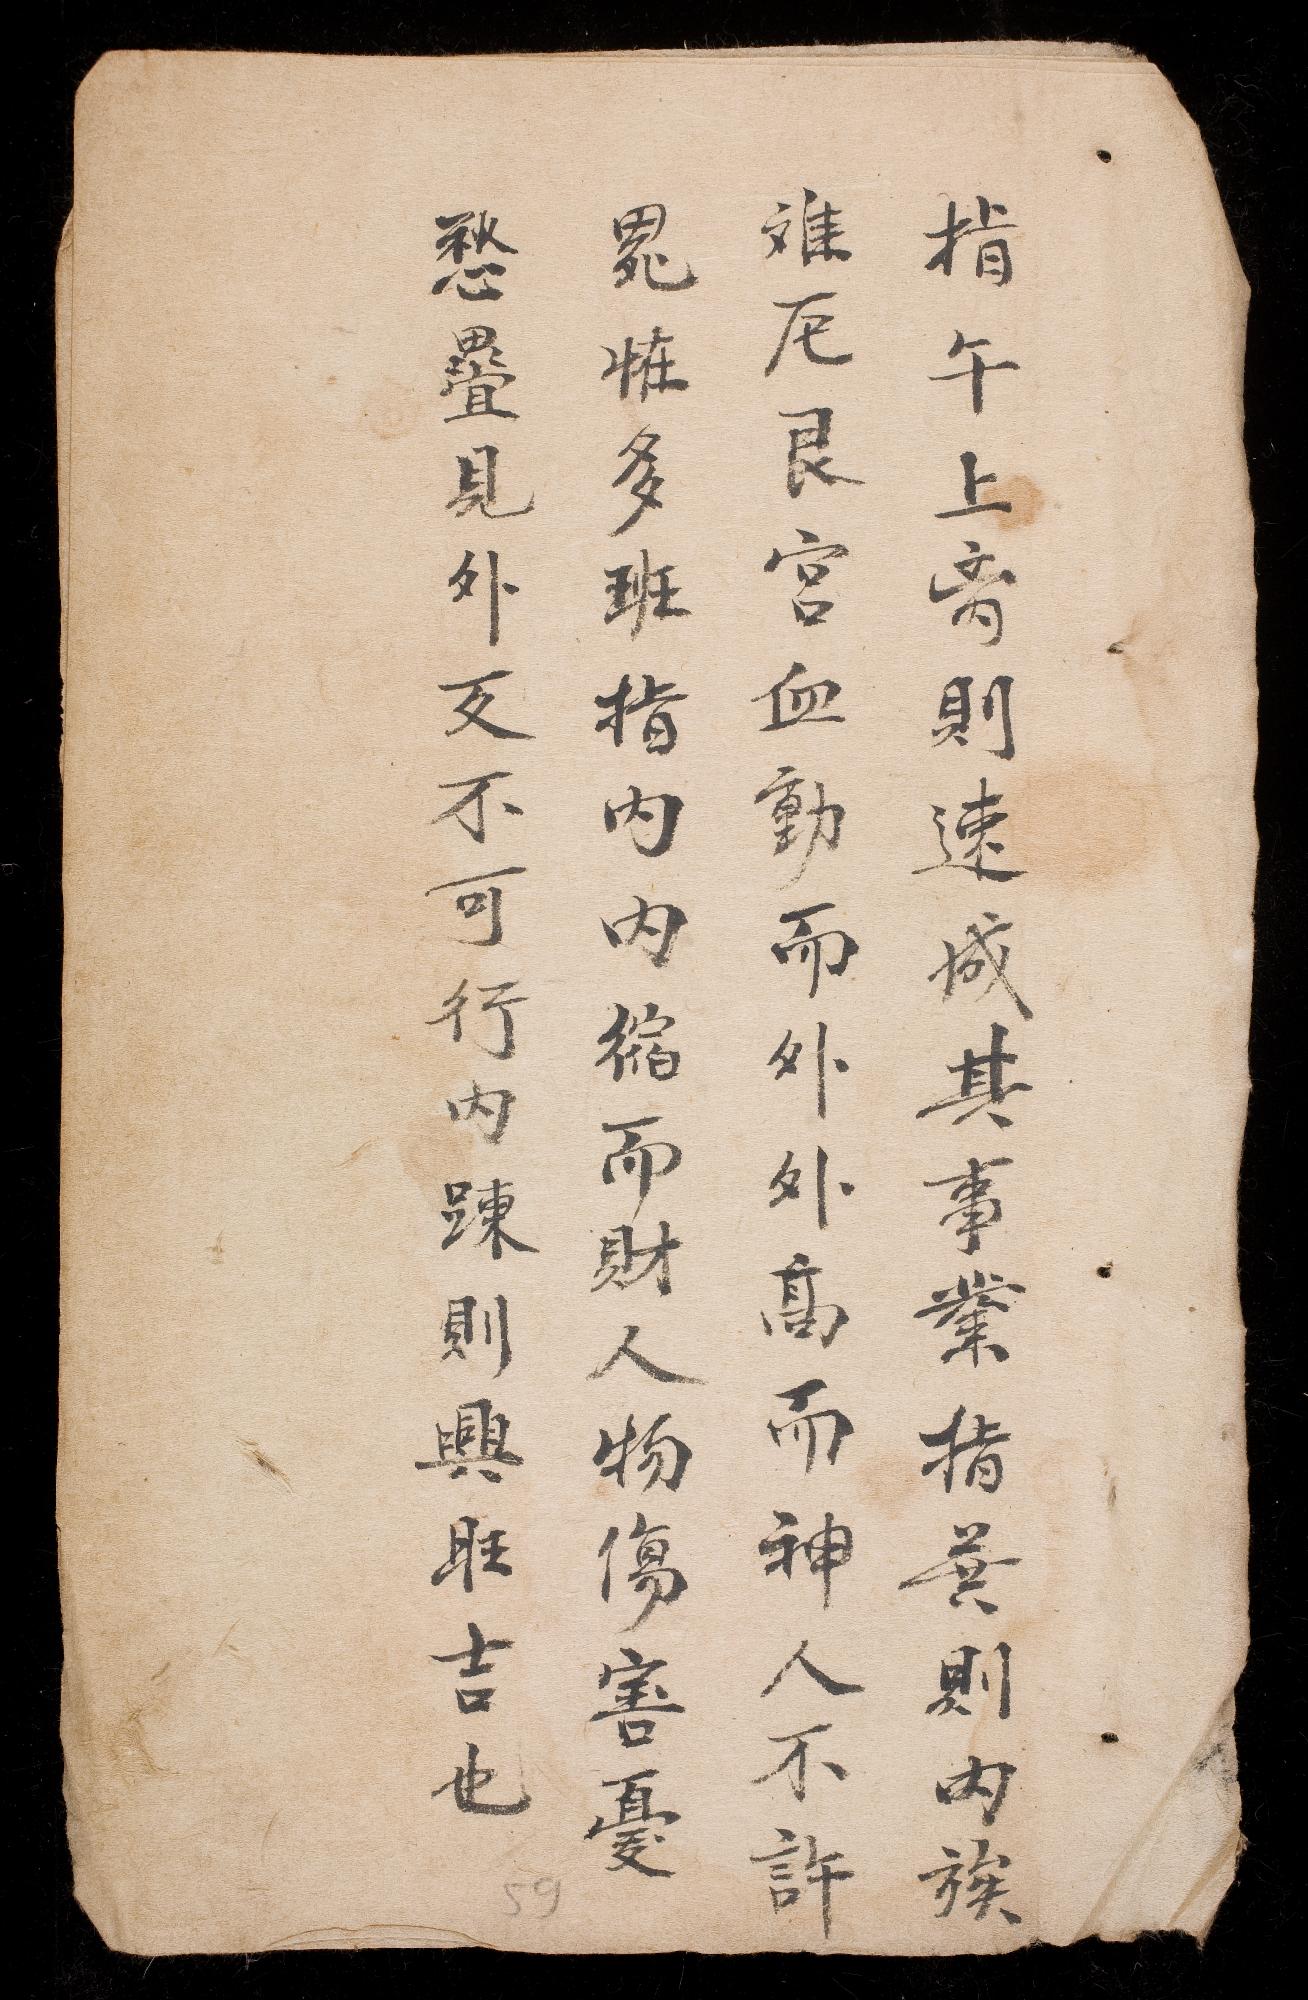 指午上啇則速成其事業指冀則內族
难厄艮宮血動而外外高而神人不許
鬼怪多班指內內縮而財人物傷害憂
愁疊見外又不可行內踈則興旺吉也
59